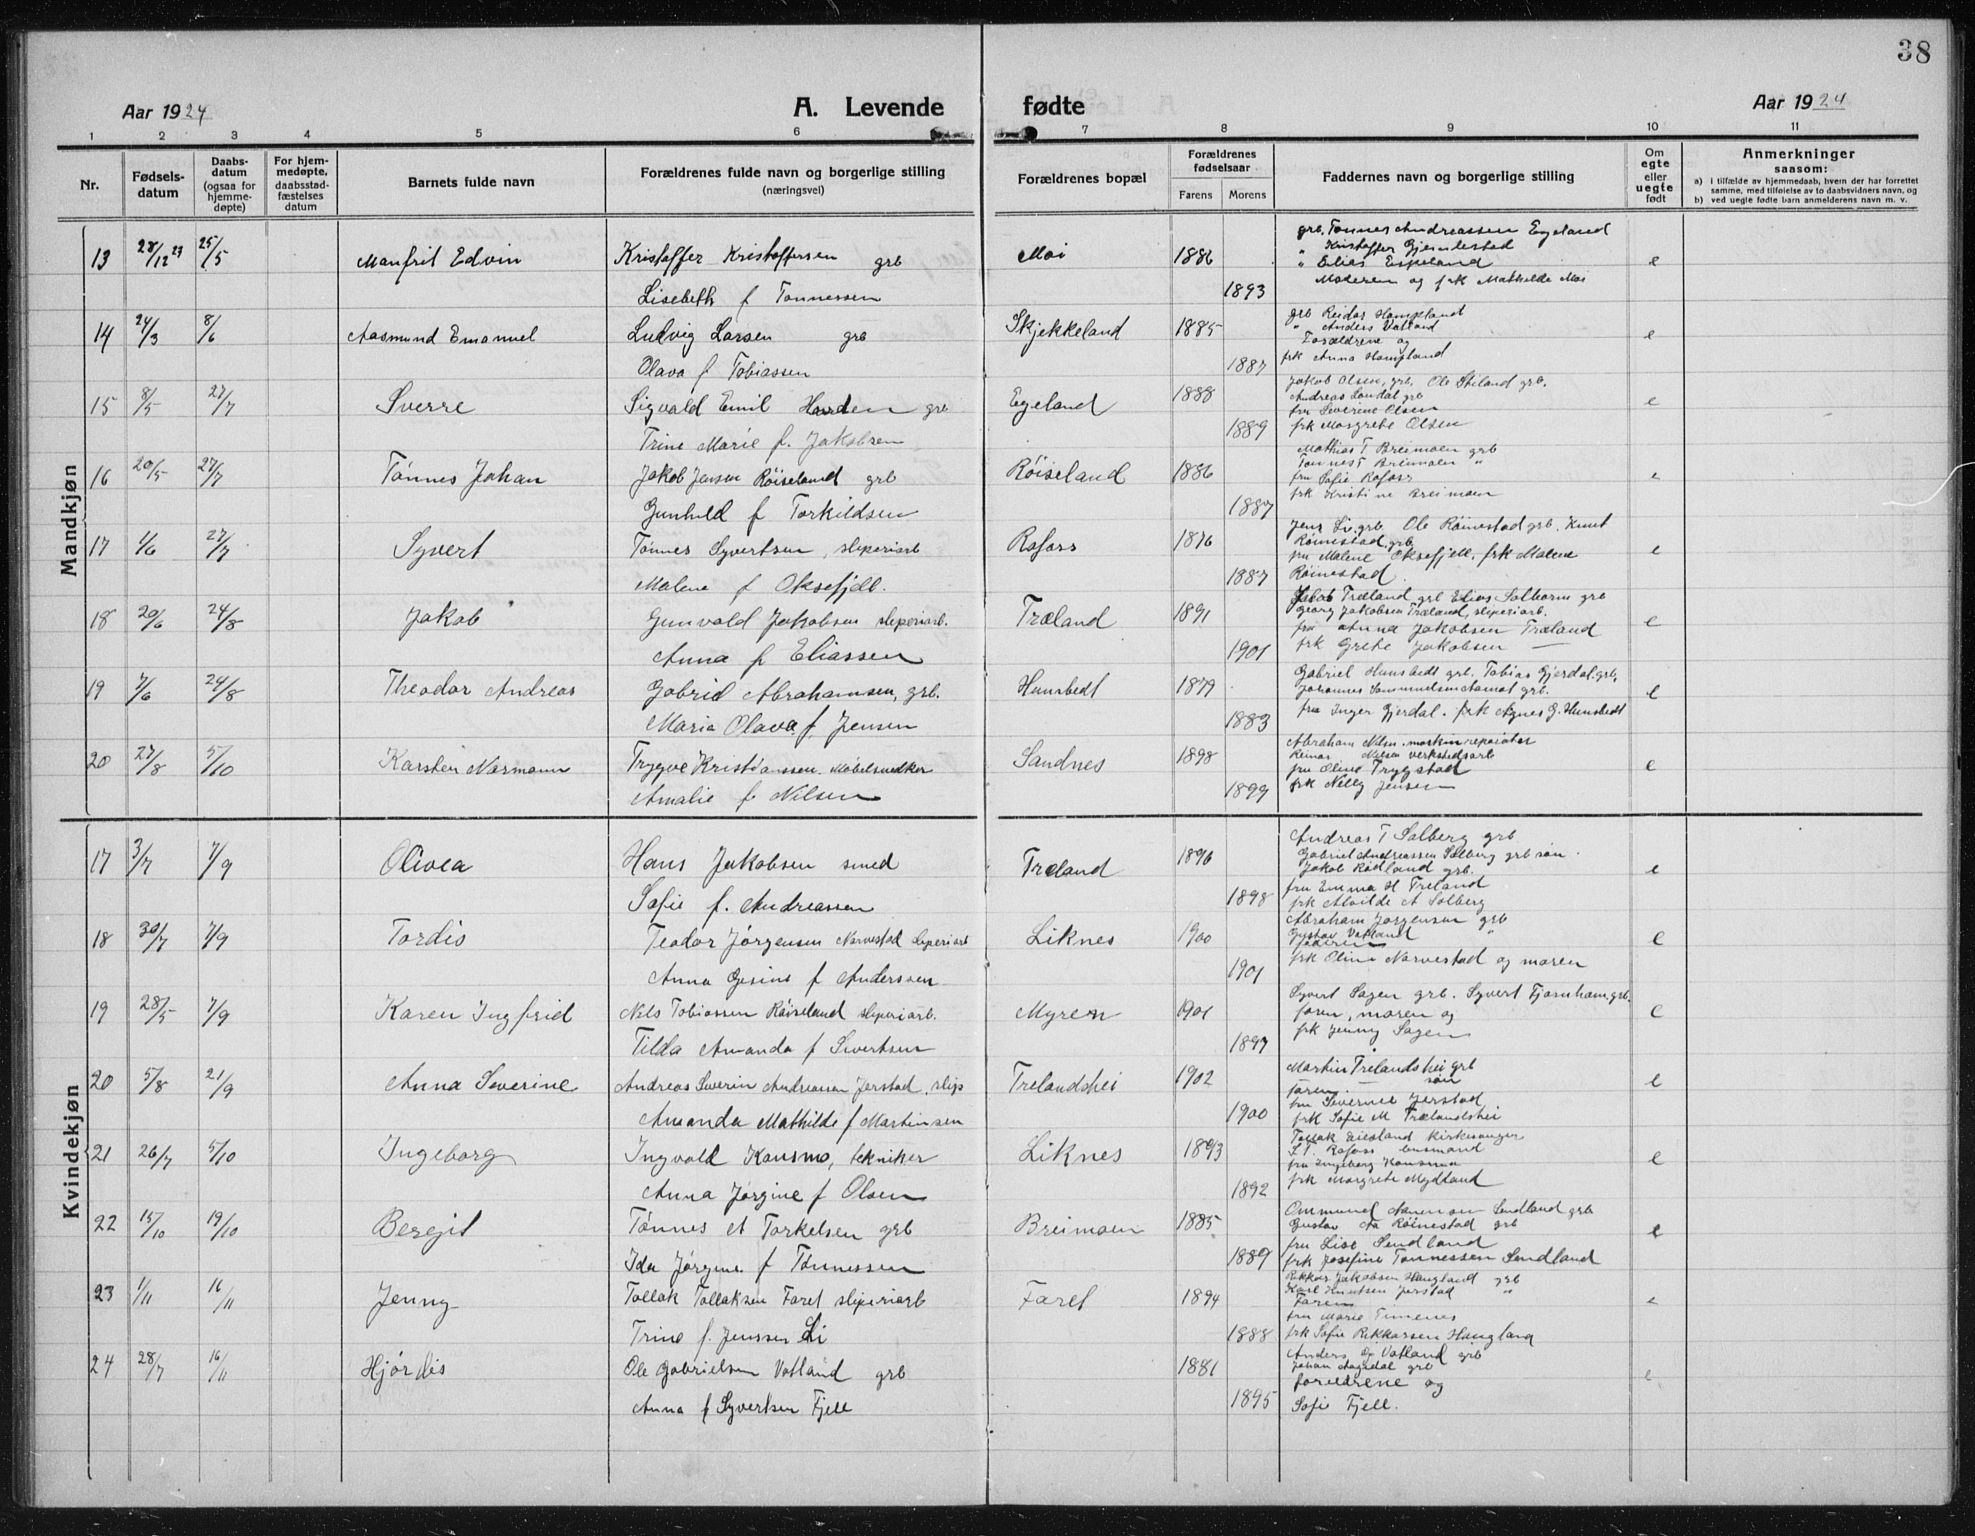 38
Aar 1924
A. Levende
fødte
Aar 1924
1 2 3 4 5 6 7 8 9 10 11
Nr.
Fødsels-
datum
Daabs-
datum
(ogsaa for
hjemme-
døpte)
For hjem-
medøpte,
daabsstad-
fæstelses
datum
Barnets fulde navn
Forældrenes fulde navn og borgerlige stilling
(næringsvei)
Forældrenes bopæl
Forældrenes
fødselsaar
Farens
Morens
Faddernes navn og borgerlige stilling
Om
egte
eller
uegte
født
Anmerkninger
saasom:
a) i tilfælde av hjemmedaab, hvem der har forrettet
samme, med tilføielse av to daabsvidners navn, og
b) ved uegte fødte barn anmelderens navn m. v.
Mandkjøn
13 28/12 23 25/5 Manfrit Edvin Kristoffer Kristoffersen grb Moi 1886 e
Lisebeth f Tønnessen 1893
grb. Tønnes Andreassen Egeland
" Kristoffer Gjemlestad
" Elias Espeland
Moderen og frk Mathilde Moi
14 24/3 8/6 Aasmund Emanuel Ludvig Larsen grb Skjekkeland 1885 e
Olava f Tobiassen 1887
grb Reidar Hompland
" Anders Vatland
Forældrene og
frk Anna Hompland
15 8/5 27/7 Sverre Sigvald Emil grb Egeland 1888 e
Trine Marie f. Jakobsen 1889
Jakob Olsen, grb. Ole Stiland grb.
Andreas Londal grb
fru Severine Olsen
frk Margrete Olsen
16 20/5 27/7 Tønnes Johan Jakob Jensen Røiseland grb Røiseland 1886 e
Gunhild f Torkildsen 1887
Mathias T Breimoen grb
Tønnes T Breimoen "
fru Sofie Rafoss
frk Kristine Breimoen
17 1/6 27/7 Syvert Tønnes Syvertsen, sliperiarb Rafoss 1876 e
Malene f Oksefjell. 1887
Jens Li, grb. Ole Røinestad grb. Knut
Røinestad, grb.
fru Malene Oksefjell, frk Malene
Røinestad.
18 20/6 24/8 Jakob Gunvald Jakobsen sliperiarb. Træland 1891 e
Anna f Eliassen 1901
Jakob Træland grb Elias Solborns grb
Georg Jakobsen Træland, sliperiarb.
fru Anna Jakobsen Træland
frk Grete Jakobsen —
19 7/6 24/8 Theodor Andreas Gabriel Abrahamsen, grb. Hunsbedt 1879 e
Maria Olava f. Jensen 1883
Gabriel Hunsbedt grb. Tobias Gjerdal grb,
Johannes grb.
fru Inger Gjerdal. frk Agnes G. Hunsbedt
20 27/8 5/10 Karsten Normann Trygve Kristianssen. Møbelsnedker Sandnes 1898 e
Amalie f. Nilsen 1899
Abraham Nilsen. maskinreparatør
Reinar Nilsen verkstedsarb
fru Oline Trygstad
frk Nelly Jensen
Kvindekjøn
17 3/7 7/9 Olivea Hans Jakobsen smed Træland 1896 e
Sofie f. Andreassen 1898
Andreas T Solberg grb
Gabriel Andreassen Solberg grb søn.
Jakob Rødland grb.
fru Emma H Treland
frk Alvilde A Solberg
18 30/7 7/9 Tordis Teodor Jørgensen Narvestad sliperiarb Liknes 1900 e
Anna Gesine f Anderssen 1901
Abraham Jørgensen grb
Gustav Vatland "
Faderen
frk Oline Narvestad og moren
19 28/5 7/9 Karen Ingfrid Nils Tobiassen Røiseland sliperiarb. Myren 1901 e
Tilda Amanda f Sivertsen 1897
Syvert Sagen grb. Syvert Tjørnham. grb.
faren, moren og
frk Jenny Sagen
20 5/8 21/9 Anna Severine Andreas Severin Andreassen Jerstad. slips Trelandshei 1902 e
Amanda Mathilde f Martinsen 1900
Martin Trelandshei grb
faren. — søn
fru Severine Jerstad
frk Sofie M Trælandshei
21 26/7 5/10 Ingeborg Ingvald Konsmo, tekniker Liknes 1893 e
Anna Jørgine f Olsen 1892
Tollak kirkesanger
Rafoss lensmand
fru Ingeborg Konsmo
frk Margrete Mydland
22 15/10 19/10 Beregit Tønnes et Torkelsen grb Breimoen 1885 e
Ida Jørgine f Tønnessen 1889
Ommund Sendland grb
Gustav Aa Røinestad grb
fru Lise Sendland
frk Josefine Tønnessen Sendland
23 1/11 16/11 Jenny Tollak Tollaksen Faret sliperiarb Faret 1894 e
Trine f. Jenssen Li 1888
Rikkar Jakobsen Haugland grb
Karl Knutsen Jerstad "
Faren
fru Marie Timenes
frk Sofie Rikkarsen Haugland
24 28/7 16/11 Hjørdis Ole Gabrielsen Vatland grb 1881 e
Anna f Syvertsen Fjell 1895
Anders Vatland grb
Johan Aagedal grb
foreldrene og
Sofie Fjell.